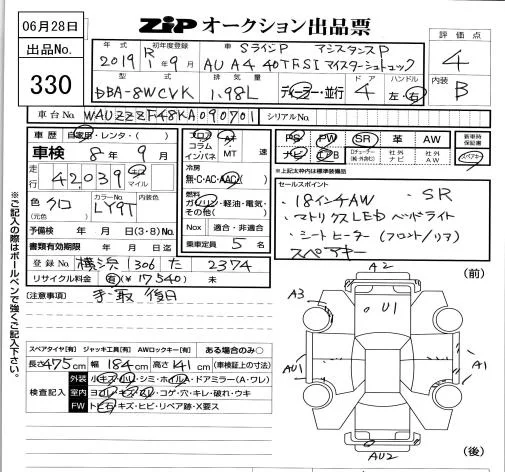 06月28日
出品No.
330
ZIP オークション出品票
評価点
4
内装
B
年式 初年度登録 車 SラインP アシスタンスP
2019 R1年9月 AU A4 40TFSI マイスターシュトュック
型式 排気量 ドア ハンドル
DBA-8WCVK 1.98L ディーラー・並行 4 左・右
車台No. WAUZZZF48KA090701 シリアルNo.
車歴 自家用・レンタ・( )
車検 8年9月
走行 42,039 キロ マイル
色 クロ (元色) カラーNo. LY9T 内装色
予備検 年 月 日(3・8)No.
書類有効期限 年 月 日迄
登録No. 横浜 1306 た 2374
リサイクル料金 有(¥17540) 未
フロア AT
コラム
インパネ MT 速
冷房
無・C・AC・AAC
燃料
ガソリン・軽油・電気・
その他( )
Nox 適合・非適合
乗車定員 5 名
PS PW SR 革 AW
ナビ エアB Dチューナー (純・外含む) 社外ナビ 社外AW
新車時保証書
スペアキー
※上記太枠内は標準装備品
セールスポイント
・18インチAW ・SR
・マトリクスLEDヘッドライト
・シートヒーター(フロント/リア)
スペアキー
(注意事項) 手・取 後日
スペアタイヤ[有] ジャッキ工具[有] AWロックキー[有] ある場合のみ○
長さ 475cm 幅 184cm 高さ 141cm (車検証上の寸法)
検査記入
外装 小キズ・小凹・シミ・ホイルA・ドアミラー(A・ワレ)
室内 ヨゴレ・キズ・スレ・コゲ・穴・キレ・破れ・ウキ
FW トビ石・キズ・ヒビ・リペア跡・X要ス
※ご記入の際はボールペンで強くご記入下さい。
(前)
A2
A3
U1
AU1
A1
AU2
(後)